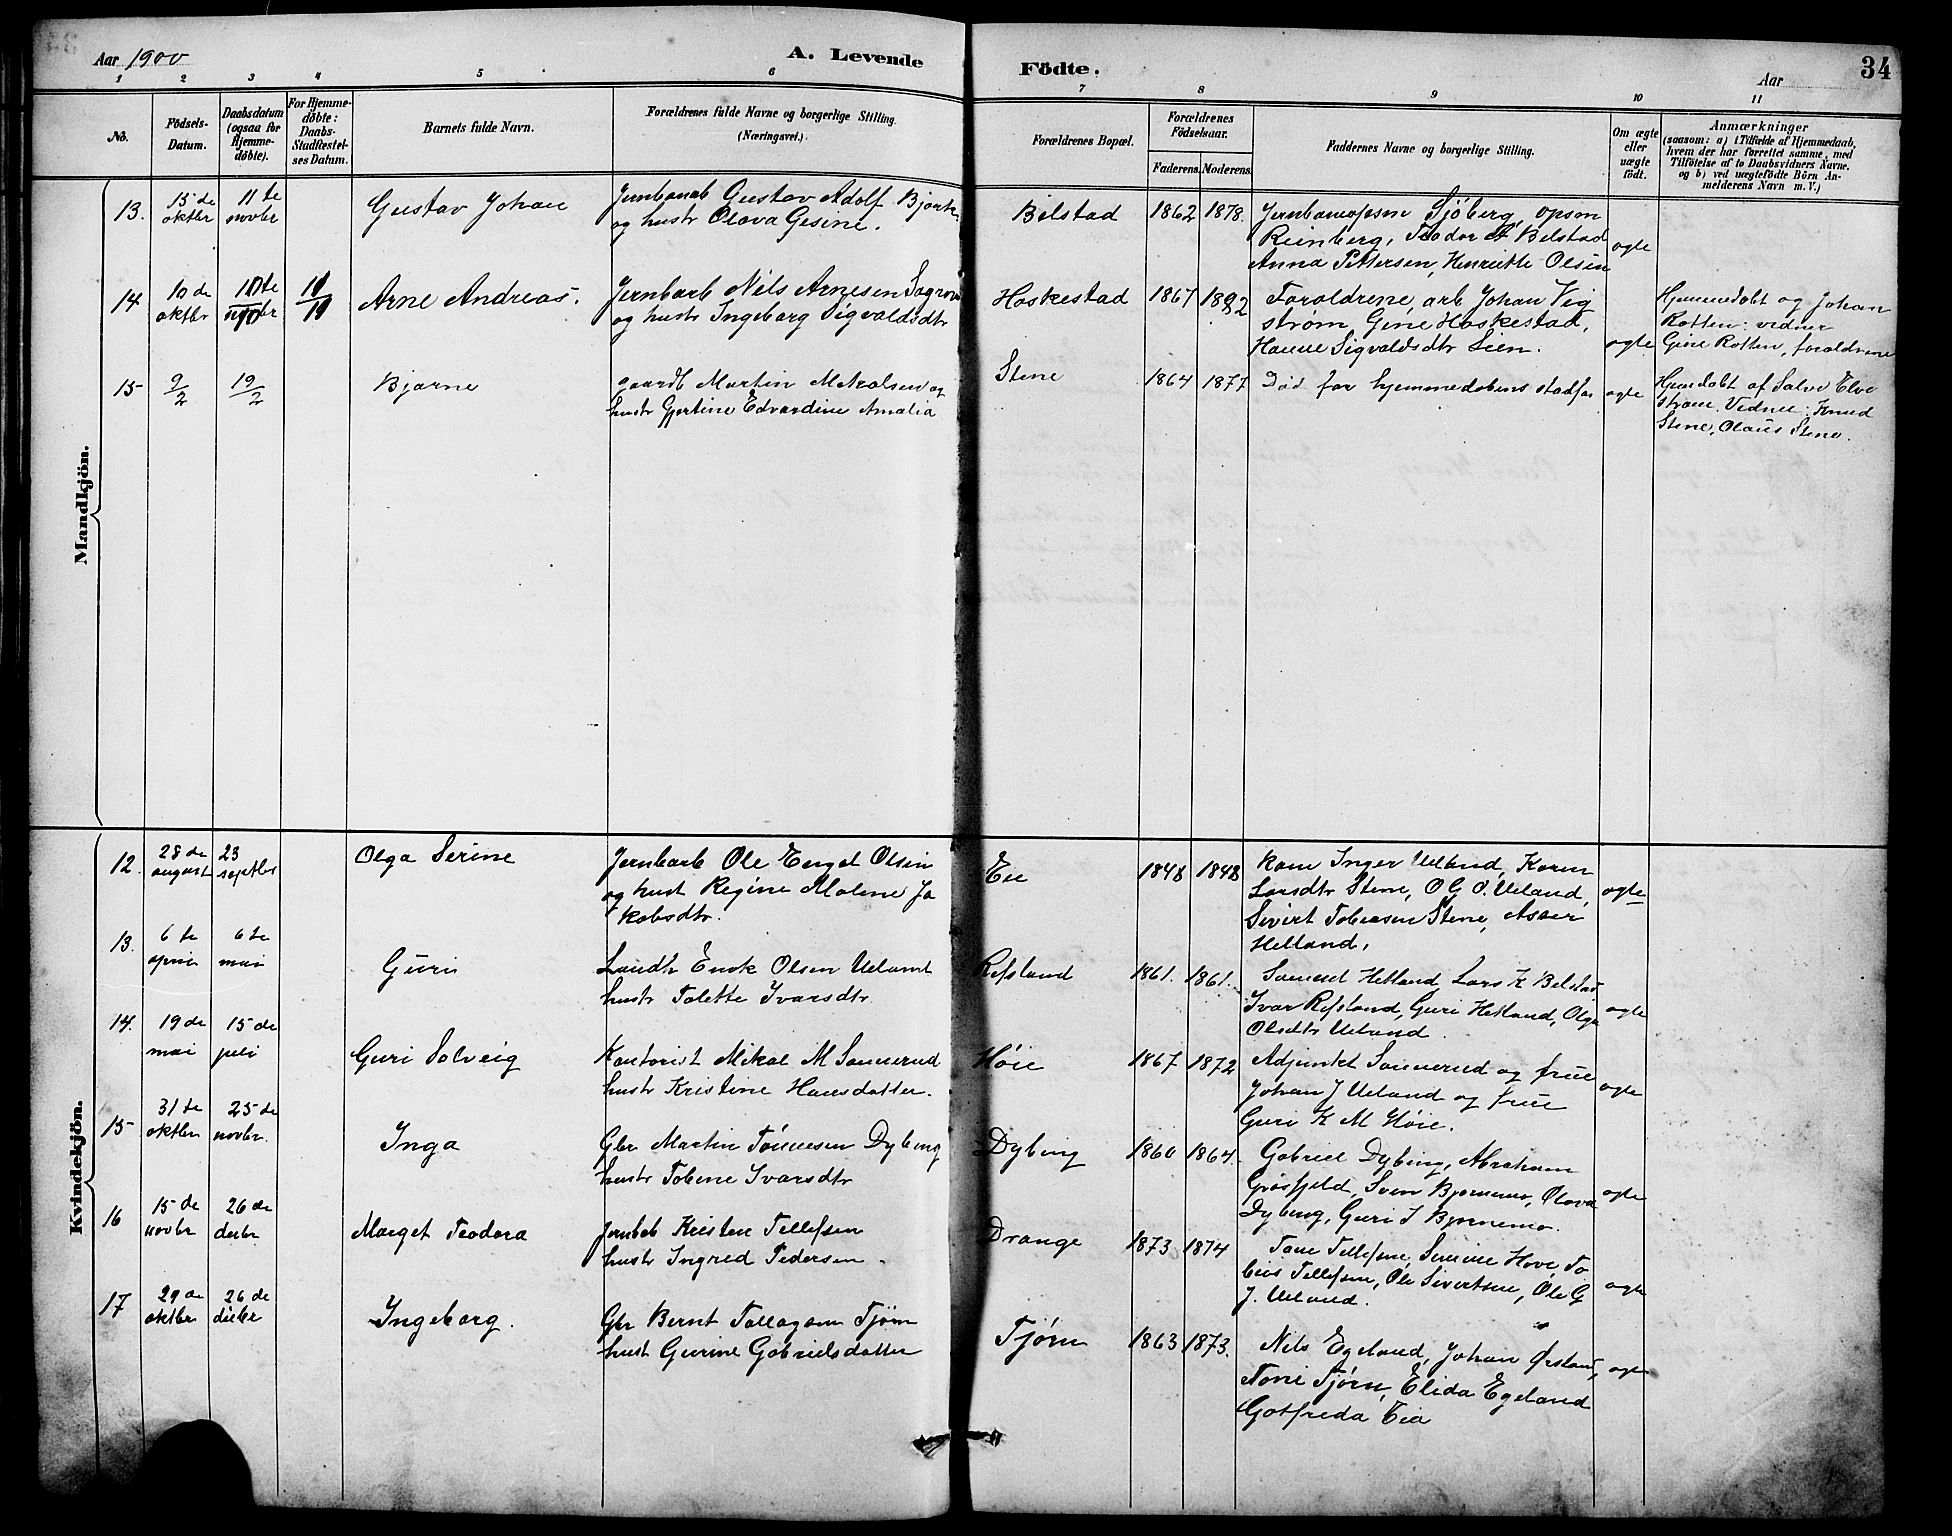 Aar 1900
A. Levende
Födte.
Aar
34
1 2 3 4 5 6 7 8 9 10 11
No.
Födsels-Datum.
Daabsdatum (ogsaa for Hjemmedøbte).
For Hjemmedøbte: Daabs-Stadfæstelses Datum.
Barnets fulde Navn.
Forældrenes fulde Navne og borgerlige Stilling. (Næringsvei.)
Forældrenes Bopæl.
Forældrenes Födselsaar.
Faderens. Moderens.
Faddernes Navne og borgerlige Stilling.
Om ægte eller uægte født.
Anmærkninger
(saasom: a) i Tilfælde af Hjemmedaab, hvem der har forrettet samme, med Tilföielse af to Daabsvidners Navne. og b) ved uægtefödte Börn Anmelderens Navn m. V.)
Mandkjön.
13. 15de oktbr 11te novbr Gustav Johan
Jernbanarb Gustav Adolf Bjork
og hustr Olava Gesine.
Bilstad 1862 1878.
Jernbaneopsm Sjöberg, opsm
Reinberg, Teodor A Bilstad
Anna Pettersen, Henriette Olsen
ægte
14 10de oktbr 10te novbr 11/11 Arne Andreas.
Jernbarb Nils Arnesen
og hustr Ingeborg Sigvaldsdtr
Haskestad 1867 1892
Forældrene, arb Johan Vig
strøm, Gine Haskestad,
Hanne Sigvaldsdtr Lien.
ægte
Hjemmedøbt og Johan
Rotten: vidner
Gine Rotten, forældrene
15 9/2 19/2 Bjarne
gaardb Martin Mikalsen og
hustr Gjertine Edvardine Amalia
Stene 1864 1877
Død før hjemmedøbens stadfæs
ægte
Hjemdøbt af Salve Elve
strøm. Vidner: Knud
Stene, Olaus Stene.
Kvindekjön.
12. 28de august 23 septbr Olga Serine
Jernbarb Ole Enget Olsen
og hust Regine Malene Ja
kobsdtr.
Eie 1848 1848
kone Inger Ueland, Karen
Larsdtr Stene, O G O. Ueland,
Sivert Tobiasen Stene, Asser
Helland.
ægte
13. 6te april 6te mai Guri
Landh Enok Olsen Ueland
hustr Tolette Ivarsdtr
Refsland 1861. 1861.
Samuel Hetland, Lars K Bilstad
Ivar Refsland, Guri Hetland, Olga
Olsdtr Ueland.
ægte
14. 19de mai 15de juli Guri Solveig
Kontorist Mikal M Sannerud
hustr Kristine Hansdatter.
Höie 1867 1872
Adjunkt Sannerud og frue
Johan J Ueland og frue
Guri K M Høie.
ægte
15 31te oktbr 25de novbr. Inga
Gbr Martin Tønnesen Dybing
hustr Tobine Ivarsdtr
Dybing 1860 1864.
Gabriel Dybing, Abraham
Grøsfjeld, Sven Bjørnemo, Olava
Dybing, Guri S Bjørnemo.
ægte
16 15de novbr 26de decbr Marget Teodora
Jernbab Kristen Tellefsen
hustr Ingrid Pedersen
Drange 1873 1874
Tone Tellefsen, Serine Hove To
bias Tellefsen, Ole Sivertsen, Ole G
J. Ueland.
ægte
17 29de oktbr 26de decbr Ingeborg.
Gbr Bernt Tollagsen Tjørn
hust Gurine Gabrielsdatter
Tjørn 1863 1873.
Nils Egeland, Johan Ørsland,
Tonie Tjørn, Elida Egeland
Gotfreda Eia
ægte